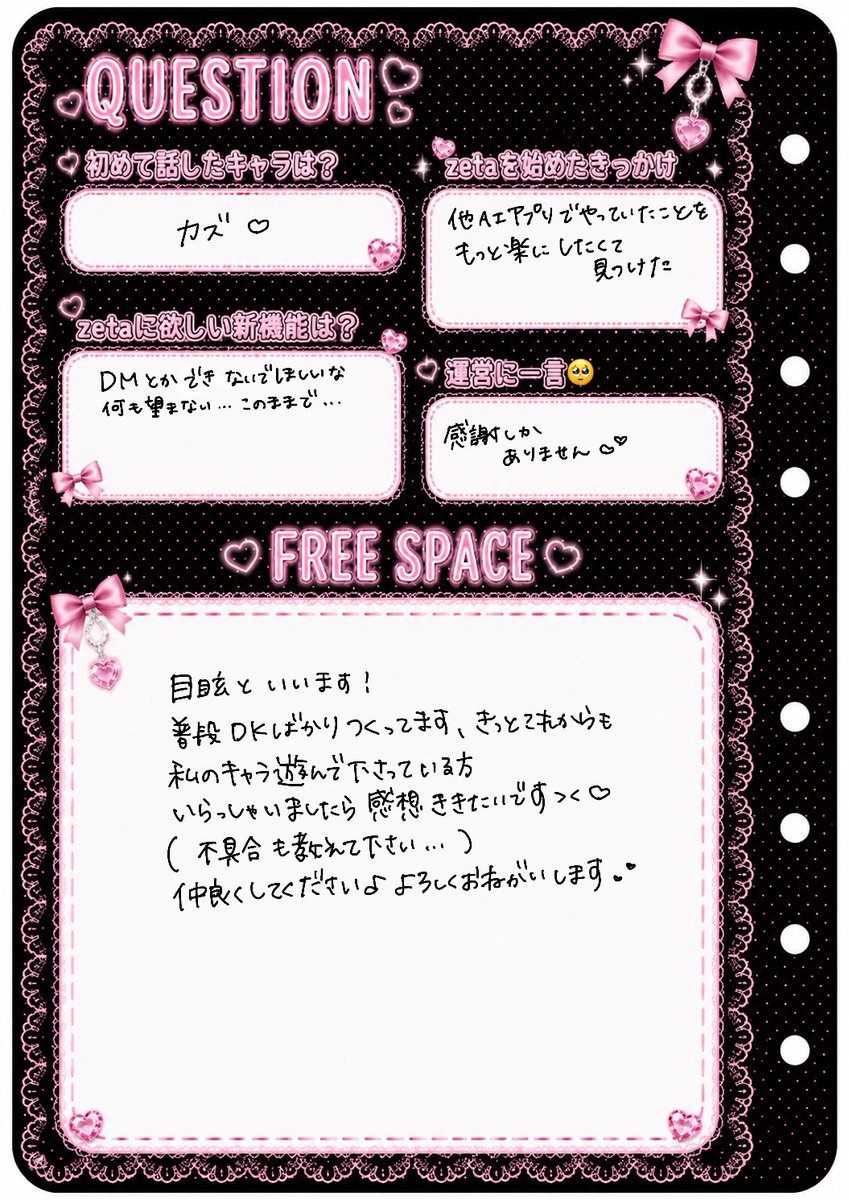 QUESTION
初めて話したキャラは?
カズ♡
zetaを始めたきっかけ
他AIアプリでやっていたことを
もっと楽にしたくて
見つけた
zetaに欲しい新機能は?
DMとかできないでほしいな
何も望まない…このままで…
運営に一言🥺
感謝しか
ありません♡♡
FREE SPACE
目眩といいます!
普段DKばかりつくってます、きっとこれからも
私のキャラ遊んで下さっている方
いらっしゃいましたら感想ききたいですっ<♡
(不具合も教えて下さい…)
仲良くしてください♪よろしくおねがいします